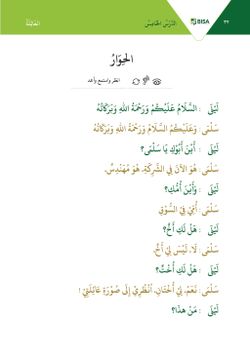 ٣٢ BISA الدَّرْسُ الْخَامِسُ العَائِلَةُ
الحِوَارُ
انظر واستمع وأعد
لَيْلَى : السَّلَامُ عَلَيْكُمْ وَرَحْمَةُ اللهِ وَبَرَكَاتُهُ
سَلْمَى : وَعَلَيْكُمُ السَّلَامُ وَرَحْمَةُ اللهِ وَبَرَكَاتُهُ
لَيْلَى : أَيْنَ أَبُوْكِ يَا سَلْمَى؟
سَلْمَى : هُوَ الآنَ فِي الشَّرِكَةِ. هُوَ مُهَنْدِسٌ.
لَيْلَى : وَأَيْنَ أُمُّكِ؟
سَلْمَى : أُمِّيْ فِي السُّوْقِ
لَيْلَى : هَلْ لَكِ أَخٌ؟
سَلْمَى : لَا، لَيْسَ لِيْ أَخٌ.
لَيْلَى : هَلْ لَكِ أُخْتٌ؟
سَلْمَى : نَعَمْ، لِيْ أُخْتَانِ. اُنْظُرِيْ إِلَى صُوْرَةِ عَائِلَتِيْ !
لَيْلَى : مَنْ هٰذَا؟